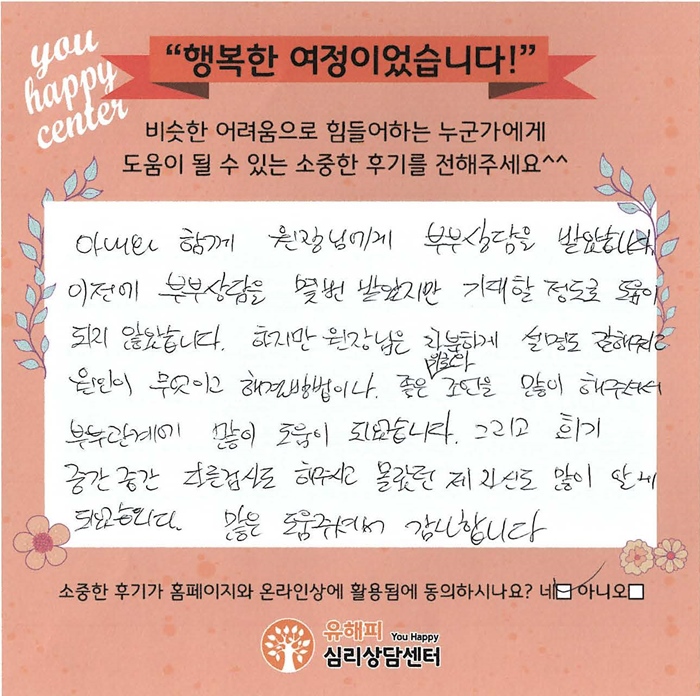 you
happy
center
“행복한 여정이었습니다!”
비슷한 어려움으로 힘들어하는 누군가에게
도움이 될 수 있는 소중한 후기를 전해주세요^^
아내와 함께 원장님에게 부부상담을 받았습니다.
이전에 부부상담을 몇번 받았지만 기대할 정도로 도움이
되지 않았습니다. 하지만 원장님은 차분하게 설명도 잘해주시고
위로와
원인이 무엇이고 해결방법이나. 좋은 조언을 많이 해주셔서
부부관계에 많이 도움이 되었습니다. 그리고
중간중간 다른검사도 해주시고 몰랐던 제 자신도 많이 알게
되었습니다. 많은 도움주셔서 감사합니다
소중한 후기가 홈페이지와 온라인상에 활용됨에 동의하시나요? 네 아니오
유해피 You Happy
심리상담센터